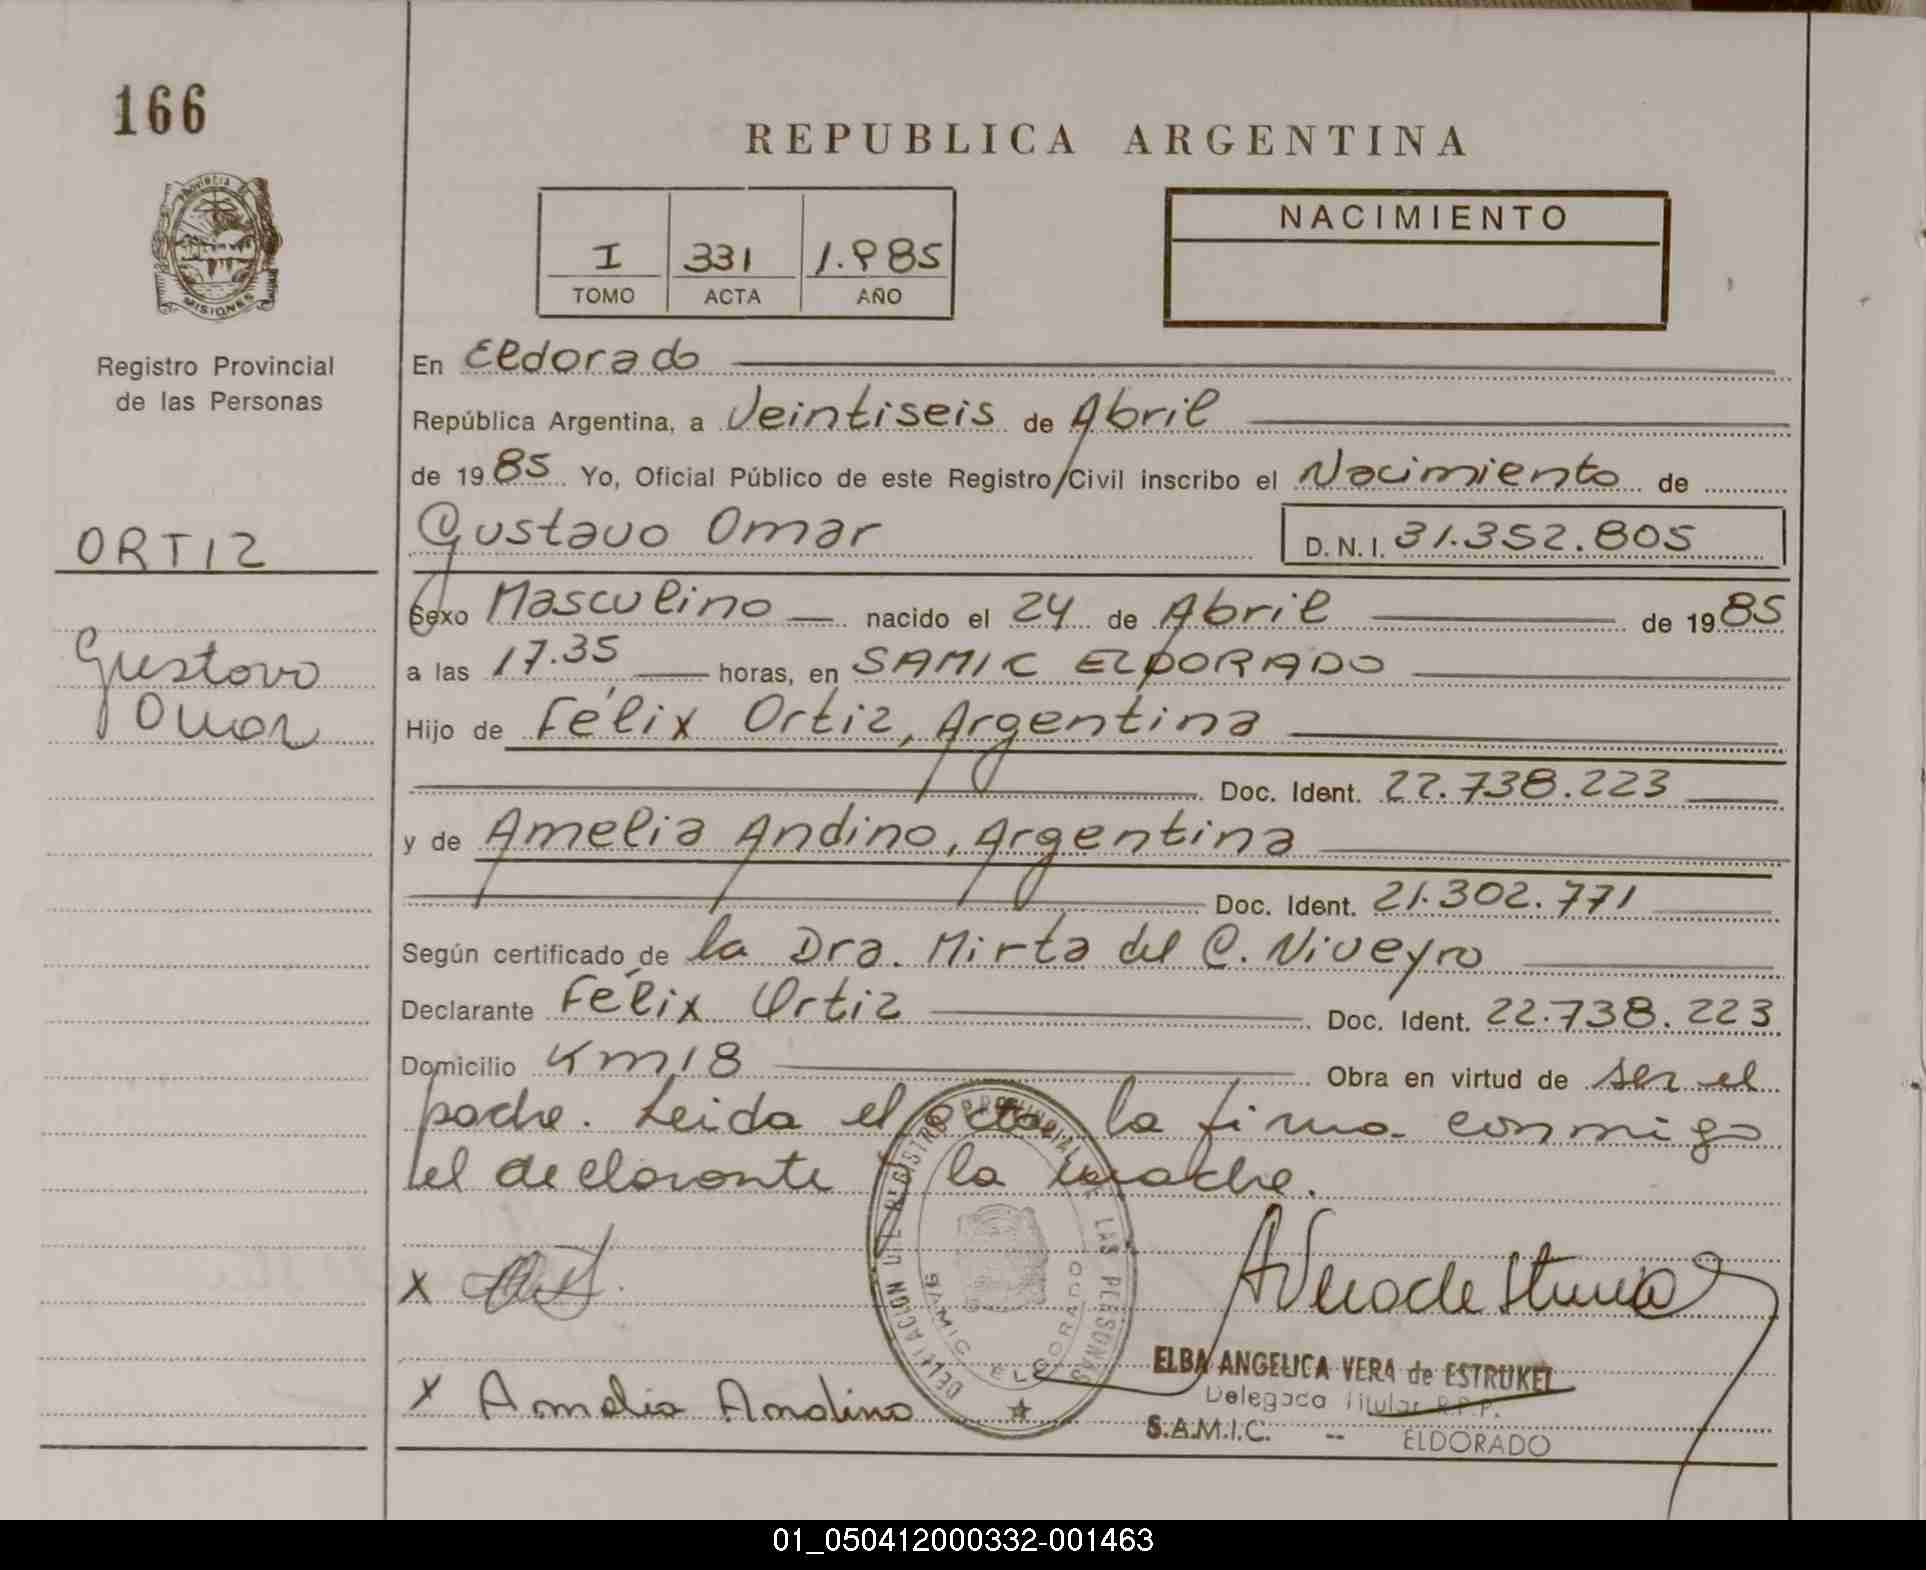 166
REPUBLICA ARGENTINA
PROVINCIA DE
MISIONES
I 331 1.985
TOMO ACTA AÑO
NACIMIENTO
Registro Provincial
de las Personas
ORTIZ
Gustavo
Omar
En Eldorado
República Argentina, a Veintiseis de Abril
de 1985 Yo, Oficial Público de este Registro Civil inscribo el Nacimiento de
Gustavo Omar D.N.I. 31.352.805
Sexo Masculino nacido el 24 de Abril de 1985
a las 17.35 horas, en SAMIC ELDORADO
Hijo de Félix Ortiz, Argentina
Doc. Ident. 22.738.223
y de Amelia Andino, Argentina
Doc. Ident. 21.302.771
Según certificado de la Dra. Mirta del C. Niveyro
Declarante Félix Ortiz Doc. Ident. 22.738.223
Domicilio Km 18 Obra en virtud de ser el
padre. Leida el acta, la firma conmigo
el declarante y la madre.
DELEGACION DEL REGISTRO PROVINCIAL DE LAS PERSONAS
SAMIC ELDORADO
X
X Amelia Andino
ELBA ANGELICA VERA de ESTRUKEL
Delegada Titular R.P.P.
S.A.M.I.C. -- ELDORADO
01_050412000332-001463